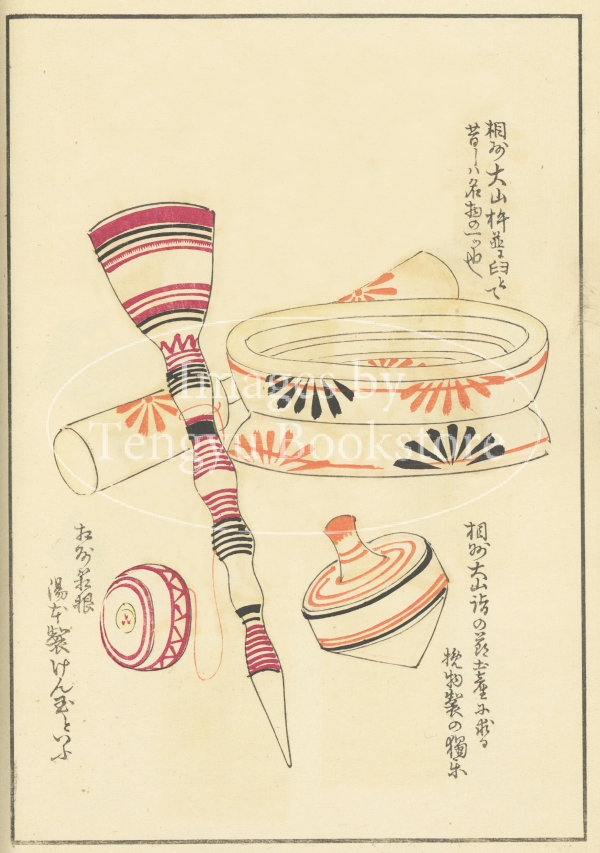 相州大山杵並に臼とて
昔しハ名物の一つ也
相州大山詣の節土産に求る
挽物製の獨樂
相州箱根
湯本製けん玉といふ
Images by
Tengyu Bookstore